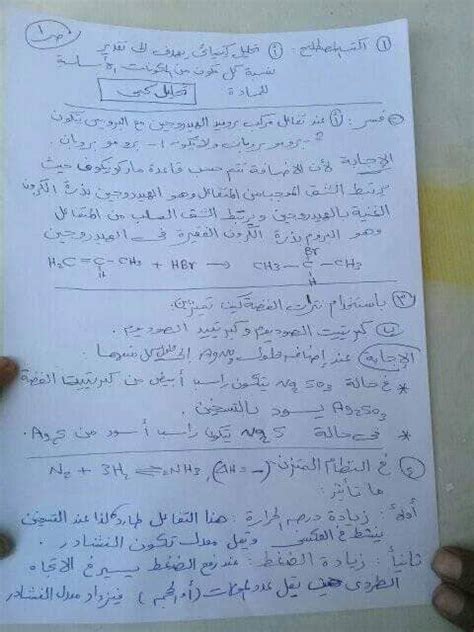 ص١
١ اكتب المصطلح: أ تحليل كيميائى يهدف الى تقدير
نسبة كل مكون من المكونات الأساسية
للمادة تحليل كمى
٢ فسر: أ عند تفاعل مركب بروبين الهيدروجين مع البروبين يتكون
2- بروموبروبان ولا يتكون 1- بروموبروبان.
الإجابة لأن الاضافة تتم حسب قاعدة ماركونيكوف حيث
يرتبط الشق الموجب من المتفاعل وهو الهيدروجين بذرة الكربون
الغنية بالهيدروجين ويرتبط الشق السالب من المتفاعل
وهو البروم بذرة الكربون الفقيرة فى الهيدروجين
H2C=C-CH3 + HBr → CH3-C-CH3
H Br H
٣ باستخدام نترات الفضة كيف تميز بين:
كبريتيت الصوديوم وكبريتيد الصوديوم.
الإجابة عند إضافة محلول AgNO3 إلى محلول كل منهما.
* فى حالة Na2SO3 يتكون راسب أبيض من كبريتيت الفضة
Ag2SO3 يسود بالتسخين.
* فى حالة Na2S يتكون راسب أسود من Ag2S.
٤ فى النظام المتزن N2 + 3H2 ⇌ 2NH3, (ΔH = -)
ما تأثير:
أولاً: زيادة درجة الحرارة: هذا التفاعل طارد لذا عند التسخين
ينشط فى العكسى ويقل معدل تكون النشادر.
ثانياً: زيادة الضغط: عند رفع الضغط يسير فى الاتجاه
الطردى حيث يقل عدد المولات (أو الحجم) فيزداد معدل النشادر